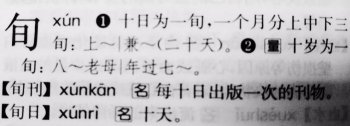 旬 xún ❶ 十日为一旬，一个月分上中下三
旬：上～｜兼～(二十天)。❷ 量 十岁为一
旬：八～老母｜年过七～。
【旬刊】xúnkān 名 每十日出版一次的刊物。
【旬日】xúnrì 名 十天。